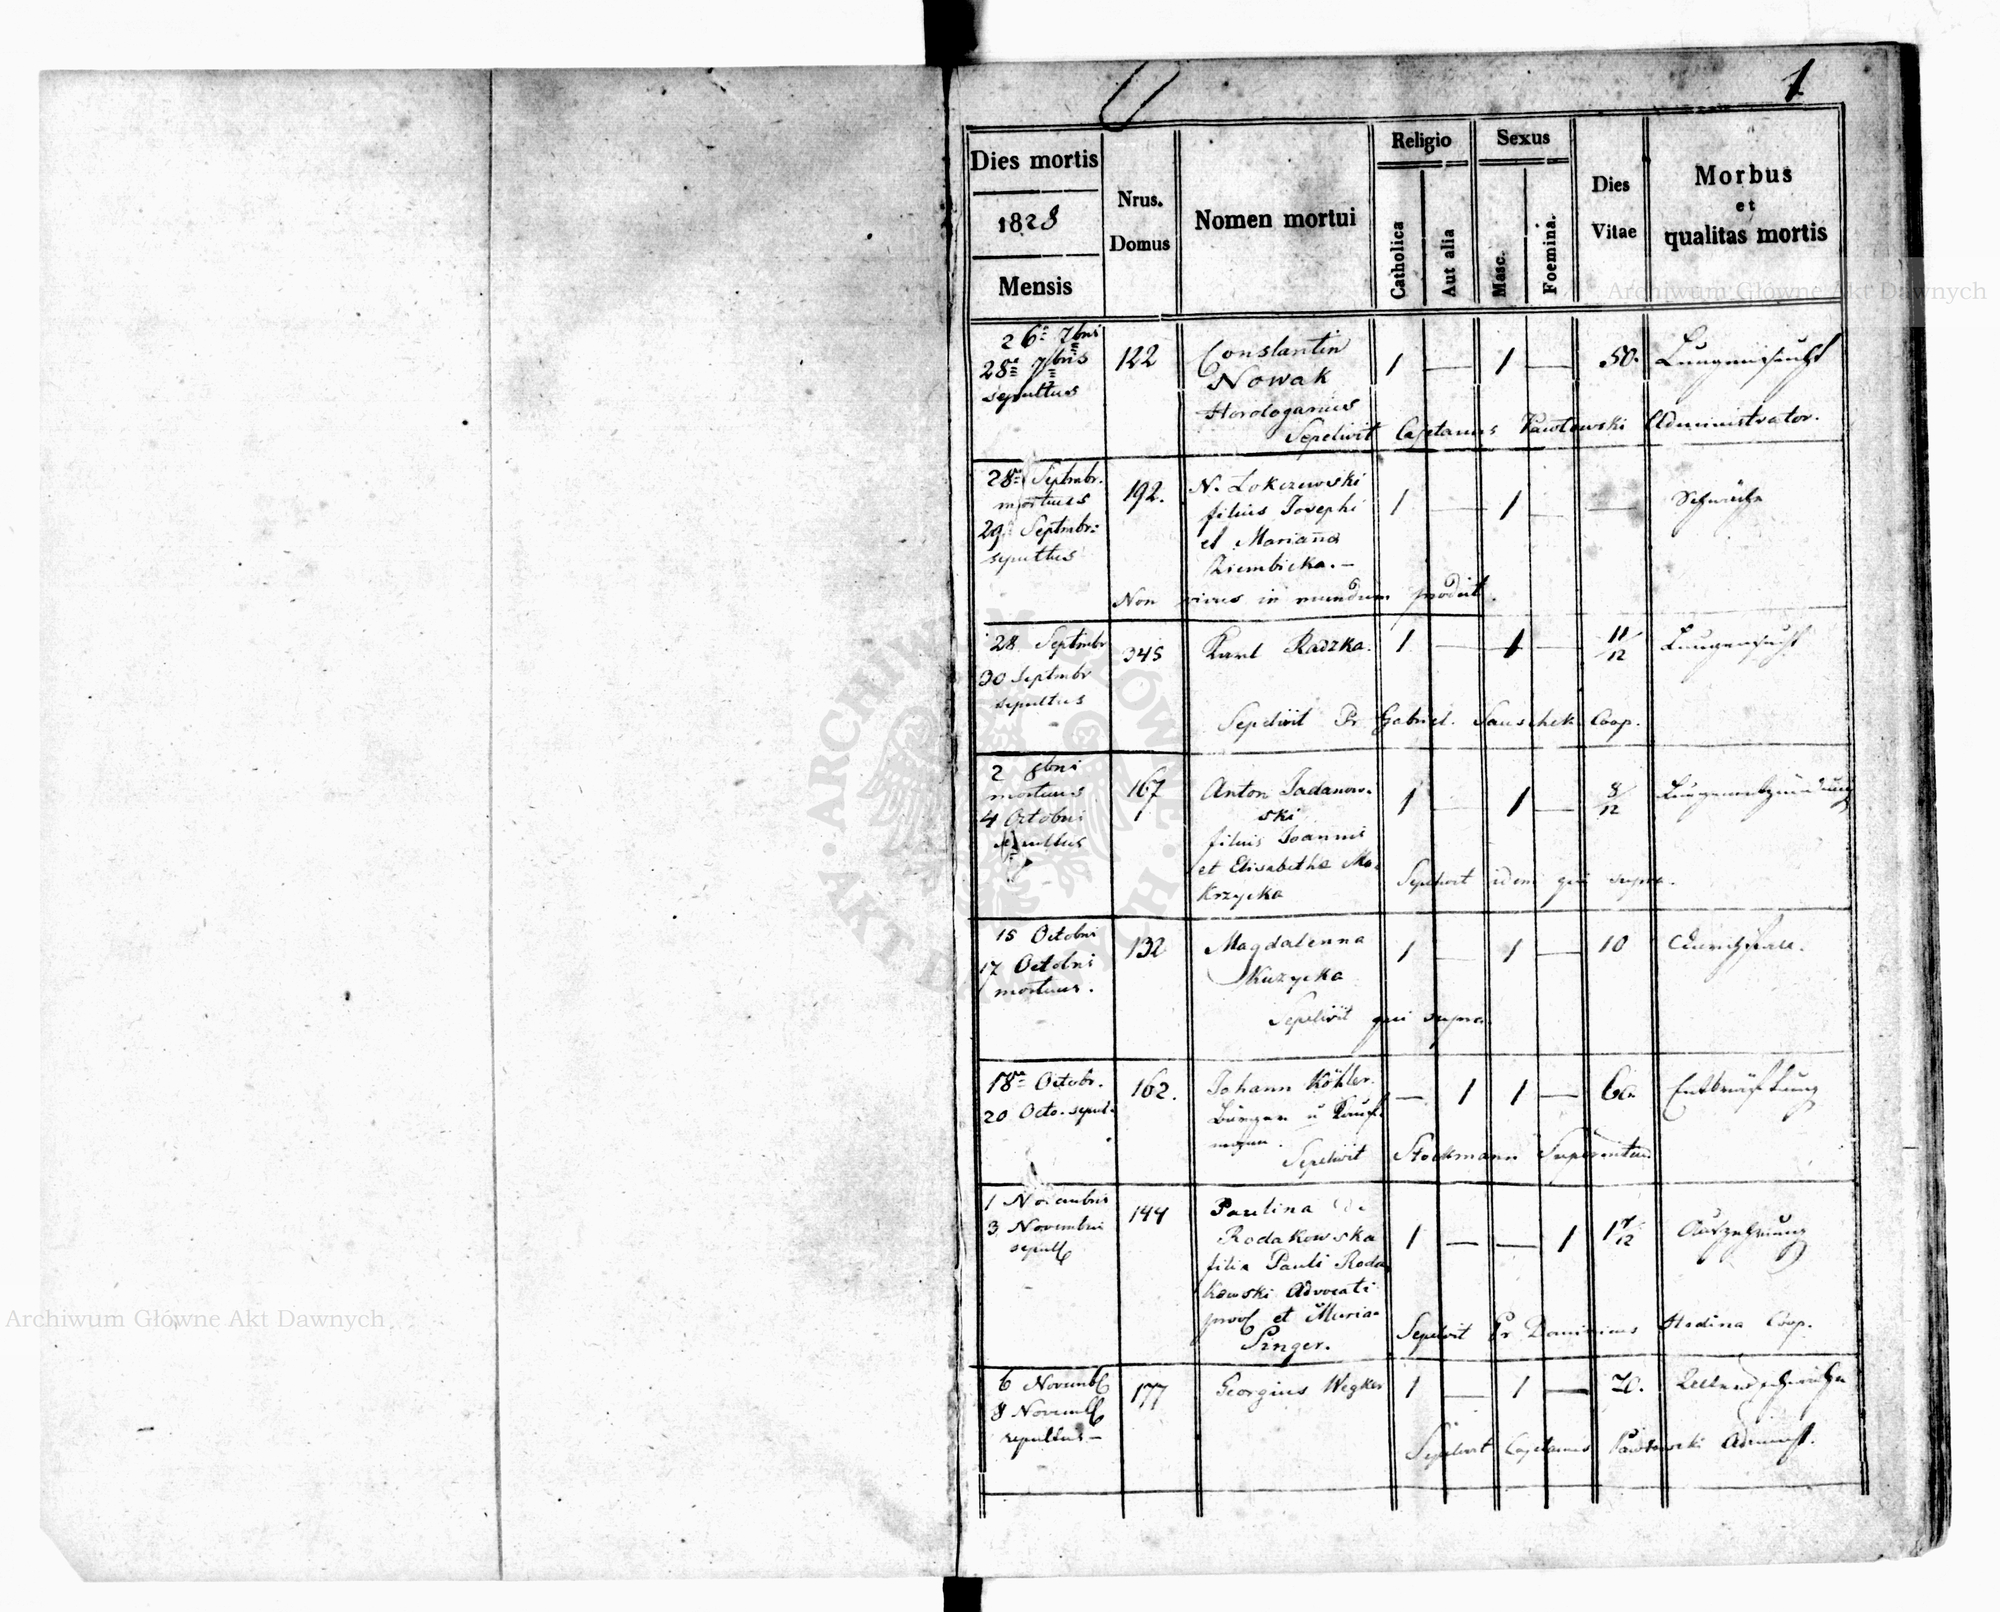 1
Dies mortis
1828
Mensis
Nrus.
Domus
Nomen mortui
Religio
Catholica
Aut alia
Sexus
Masc.
Foemina.
Dies
Vitae
Morbus
et
qualitas mortis
Archiwum Główne Akt Dawnych
26 7bris
28 7bris
sepultus
122
Constantin
Nowak
Horologarius
1 — 1 — 50.
Lungensucht
Sepelivit Cajetanus Pawłowski Administrator.
28 Septmbr.
mortuus
29 Septmbr:
sepultus
192.
N. Lokczewski
filius Josephi
et Marianna
Ziembicka. —
1 — 1 — —
Schwäche
Non vivus in mundum prodiit.
28 Septmbr
30 Septmbr
sepultus
345
Karl Radzka.
1 — 1 — 11/12
Lungensucht
Sepelivit Pr Gabriel Sauschek Coop.
2 8bris
mortuus
4 Octobris
sepultus
167
Anton Jadanow-
ski
filius Joannis
et Elisabetha Mo-
krzycka
1 — 1 — 8/12
Lungenentzündung
Sepelivit idem qui supra.
15 Octobris
17 Octobris
mortuus.
132
Magdalenna
Kuzycka
1 — 1 — 10
Sepelivit qui supra.
18 Octobr.
20 Octo. sepul.
162.
Johann Köhler.
Bürger u Kauf-
mann.
— 1 1 —
Entkräftung
Sepelivit Stockmann
1 Novembris
3 Novembris
144
Paulina de
Rodakowska
filia Pauli Roda
kowski Advocati
prov et Maria
Singer.
1 — — 1 1
Auszehrung
Sepelivit Pr Dominicus Hodina Coop.
6 Novemb
8 Novemb
sepultus —
177
Georgius Wegker
1 — 1 — 70.
Sepelivit Cajetanus Pawłowski Administ.
ARCHIWUM GŁÓWNE
AKT DAWNYCH
Archiwum Główne Akt Dawnych